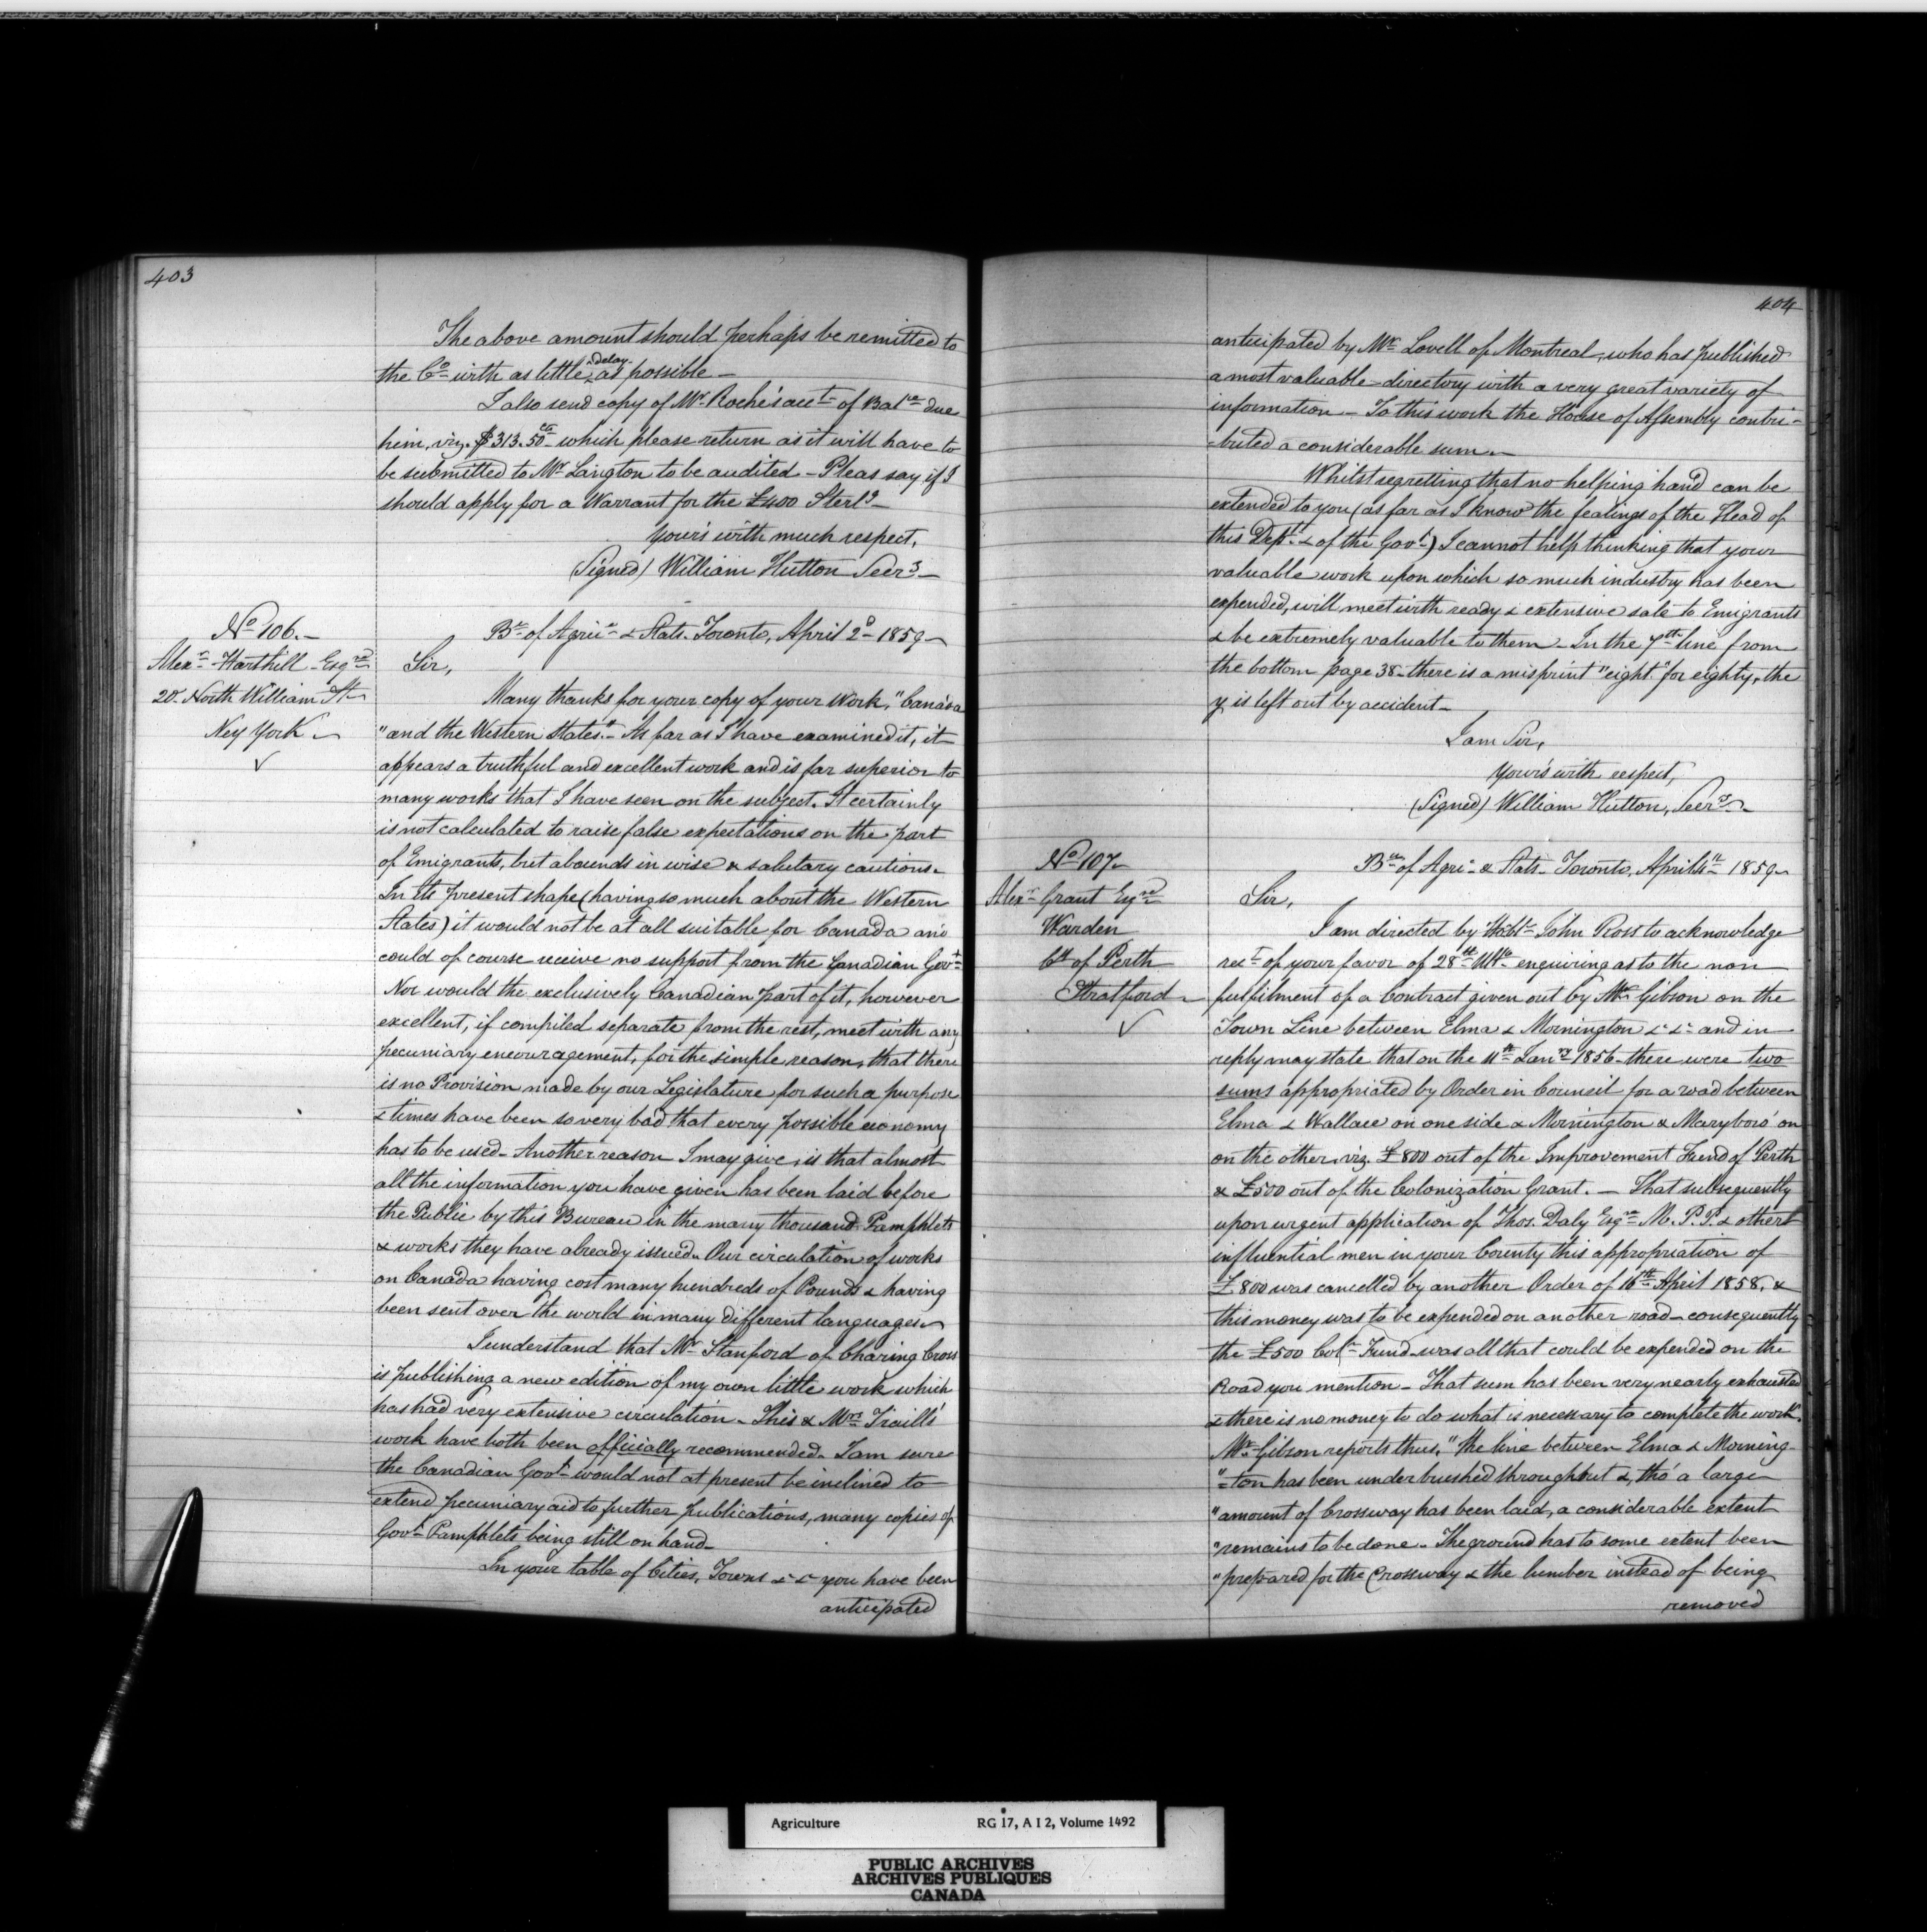 403
The above amount should perhaps be remitted to
the Co with as little delay as possible -
I also send copy of Mr. Roche's acct of Balce due
him, viz. $313.50 cts which please return as it will have to
be submitted to Mr Langton to be audited - Pleas say if I
should apply for a Warrant for the £400 Sterlg -
Your's with much respect,
(Signed) William Hutton Secry -
No 106. -
Alexr Harthill Esqre
20 North William St -
Ney York -
✓
Bu of Agrire & Stats. Toronto, April 2d 1859 -
Sir,
Many thanks for your copy of your Work, "Canada
"and the Western States." - As far as I have examined it, it
appears a truthful and excellent work and is far superior to
many works that I have seen on the subject. It certainly
is not calculated to raise false expectations on the part
of Emigrants, but abounds in wise & salutary cautions -
In its present shape (having so much about the Western
States) it would not be at all suitable for Canada and
could of course receive no support from the Canadian Govt
Nor would the exclusively Canadian part of it, however
excellent, if compiled separate from the rest, meet with any
pecuniary encouragement, for the simple reason, that there
is no Provision made by our Legislature for such a purpose
& times have been so very bad that every possible economy
has to be used - Another reason I may give, is that almost
all the information you have given has been laid before
the Public by this Bureau in the many thousand Pamphlets
& works they have already issued - Our circulation of works
on Canada having cost many hundreds of Pounds & having
been sent over the world in many different languages -
I understand that Mr Stanford of Charing Cross
is publishing a new edition of my own little work which
has had very extensive circulation - This & Mrs Traill's
work have both been officially recommended - I am sure
the Canadian Govt would not at present be inclined to
extend pecuniary aid to further publications, many copies of
Govt Pamphlets being still on hand -
In your table of Cities, Towns &c &c you have been
anticipated
404
anticipated by Mr Lovell of Montreal, who has published
a most valuable directory with a very great variety of
information - To this work the House of Assembly contri-
-buted a considerable sum -
Whilst regretting that no helping hand can be
extended to you (as far as I know the feelings of the Head of
this Dept & of the Govt) I cannot help thinking that your
valuable work upon which so much industry has been
expended, will meet with ready & extensive sale to Emigrants
& be extremely valuable to them - In the 7th line from
the bottom page 38 there is a misprint "eight" for eighty, the
y is left out by accident -
I am Sir,
Your's with respect,
(Signed) William Hutton, Secry -
No 107 -
Alexr Grant Eqre
Warden
Cy of Perth
Stratford -
✓
Bu of Agri & Stats - Toronto, April 4th 1859 -
Sir,
I am directed by Hoble John Ross to acknowledge
rect of your favor of 28th Ulto enquiring as to the non
fulfilment of a Contract given out by Mr Gibson on the
Town Line between Elma & Mornington &c &c and in
reply may state that on the 11th Janry 1856 there were two
sums appropriated by Order in Council for a road between
Elma & Wallace on one side & Mornington & Maryboro' on
on the other, viz. £800 out of the Improvement Fund of Perth
& £500 out of the Colonization Grant. - That subsequently
upon urgent application of Thos. Daly Esqre M.P.P. & other
influential men in your County this appropriation of
£800 was cancelled by another Order of 16th April 1858, &
this money was to be expended on another road - consequently
the £500 Coln Fund was all that could be expended on the
Road you mention - That sum has been very nearly exhausted
& there is no money to do what is necessary to complete the work.
Mr Gibson reports thus, "the line between Elma & Morning-
"-ton has been underbrushed throughout &, tho' a large
"amount of Crossway has been laid, a considerable extent
"remains to be done - The ground has to some extent been
"prepared for the Crossway & the lumber instead of being
removed
Agriculture RG 17, A I 2, Volume 1492
PUBLIC ARCHIVES
ARCHIVES PUBLIQUES
CANADA